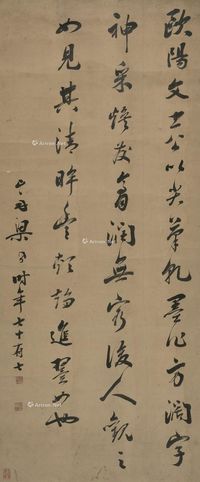 歐陽文忠公以尖筆乾墨作方濶字
神采煥發膏潤無窮後人觀之
如見其清眸豐頰進如也
山舟梁同書時年七十有七
Artron.Net